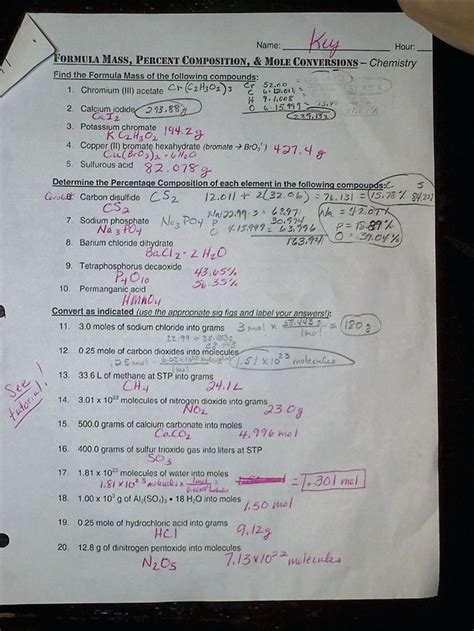 Name: Key Hour:
FORMULA MASS, PERCENT COMPOSITION, & MOLE CONVERSIONS – Chemistry
Find the Formula Mass of the following compounds:
1. Chromium (III) acetate Cr(C2H3O2)3 Cr 52.00
C 6·12.011 =
H 9·1.008
O 6·15.999 =
229.13g
2. Calcium iodide 293.88g
CaI2
3. Potassium chromate 194.2g
K2CrO4
4. Copper (II) bromate hexahydrate (bromate → BrO3¹⁻) 427.4g
Cu(BrO3)2·6H2O
5. Sulfurous acid 82.078g
Determine the Percentage Composition of each element in the following compounds:
6. Carbon disulfide CS2 12.011 + 2(32.06) = 76.131 = 15.78%
CS2
7. Sodium phosphate Na3PO4 Na 22.99·3 = 68.97
Na3PO4 P = 30.974
O 4·15.999 = 63.996
163.94
Na = 42.07%
P = 18.89%
O = 39.04%
8. Barium chloride dihydrate
BaCl2·2H2O
9. Tetraphosphorus decaoxide 43.65%
P4O10 56.35%
10. Permanganic acid
HMnO4
Convert as indicated (use the appropriate sig figs and label your answers!):
11. 3.0 moles of sodium chloride into grams 3 mol × 58.443g / 1mol = 180g
12. 0.25 mole of carbon dioxides into molecules
.25 mol · 1.51×10²³ molecules
13. 33.6 L of methane at STP into grams
CH4 24.1L
See tutorial!
14. 3.01 x 10²³ molecules of nitrogen dioxide into grams
NO2 23.0g
15. 500.0 grams of calcium carbonate into moles
CaCO3 4.996 mol
16. 400.0 grams of sulfur trioxide gas into liters at STP
SO3
17. 1.81 x 10²³ molecules of water into moles
1.81 x10²³ molecules × 1mol = .301 mol
18. 1.00 x 10³ g of Al2(SO4)3 • 18 H2O into moles
1.50 mol
19. 0.25 mole of hydrochloric acid into grams
HCl 9.12g
20. 12.8 g of dinitrogen pentoxide into molecules
N2O5 7.13×10²² molecules